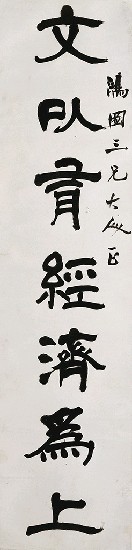 鴻圖三兄大人正
文以育經濟為上